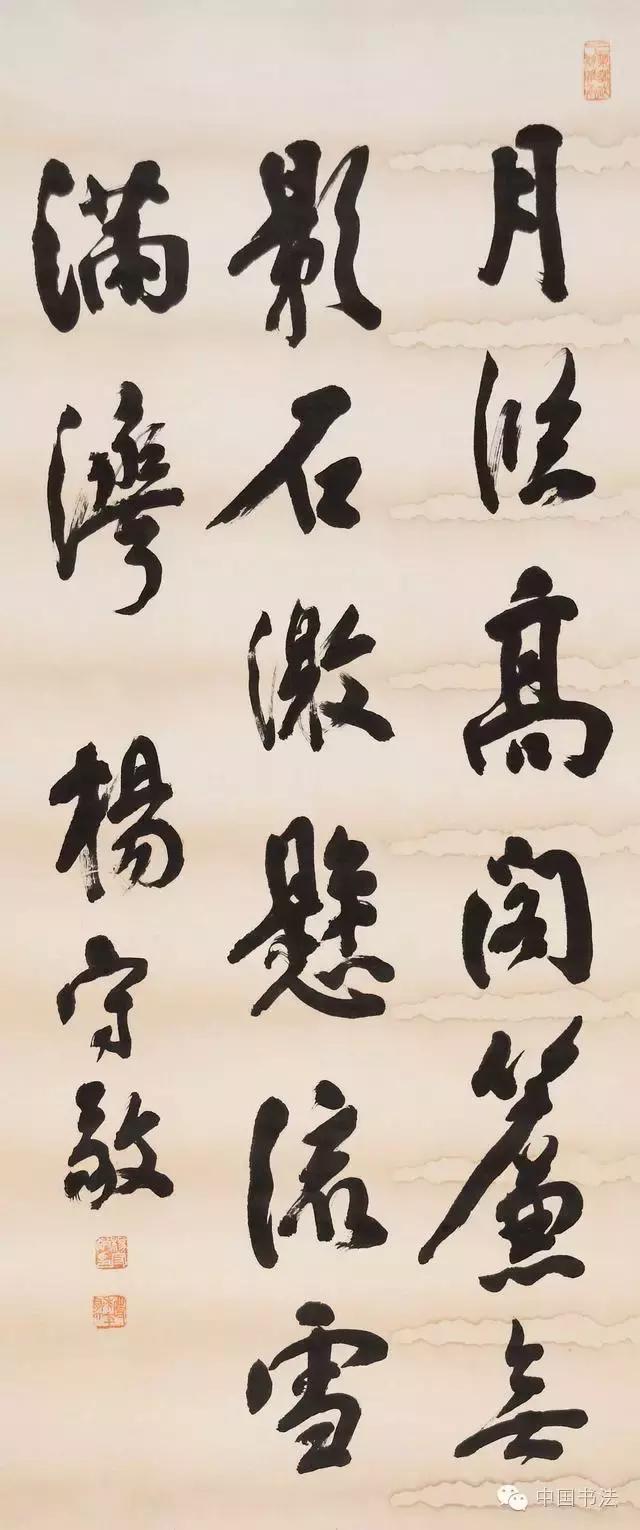 月臨髙閣簾無
影石激懸流雪
滿灣 楊守敬
中国书法